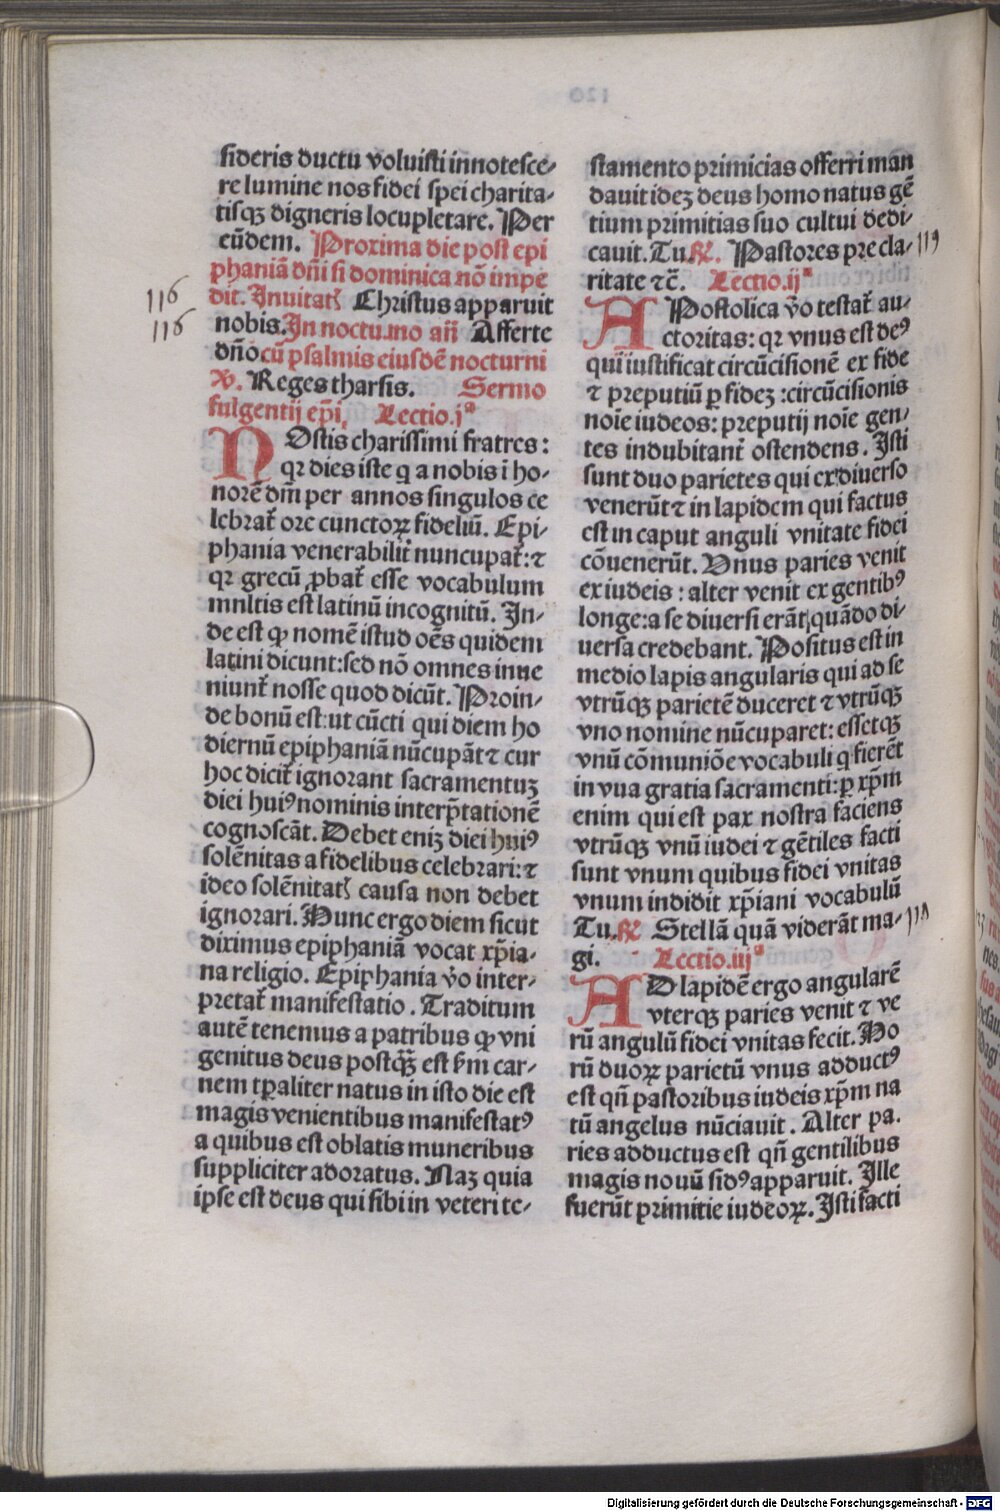 sideris ductu voluisti innotesce-
re lumine nos fidei spei charita-
tisqʒ digneris locupletare. Per
eūdem. Proxima die post epi
phaniā dñi si dominica nō impe
dit. Inuitatꝭ Christus apparuit
nobis. In nocturno añ Afferte
dño cū psalmis eiusdē nocturni
℣. Reges tharsis. Sermo
fulgentij ep̄i. Lectio.jᵃ
NOstis charissimi fratres:
qꝛ dies iste q̄ a nobis ī ho-
norē dñi per annos singulos ce
lebrat̄ ore cunctoꝝ fideliū. Epi-
phania venerabilit̄ nuncupat̄: ⁊
qꝛ grecū ꝓbat̄ esse vocabulum
mnltis est latinū incognitū. In-
de est ꝙ nomē istud oēs quidem
latini dicunt: sed nō omnes inue
niunt̄ nosse quod dicūt. Proin-
de bonū est: ut cūcti qui diem ho
diernū epiphaniā nūcupāt ⁊ cur
hoc dicit̄ ignorant sacramentuʒ
diei huiꝰ nominis interp̄tationē
cognoscāt. Debet eniʒ diei huiꝰ
solēnitas a fidelibus celebrari: ⁊
ideo solēnitatꝭ causa non debet
ignorari. Hunc ergo diem sicut
diximus epiphaniā vocat xp̄ia-
na religio. Epiphania v̄o inter-
pretat̄ manifestatio. Traditum
autē tenemus a patribus ꝙ vni
genitus deus postqʒ̄ est ẜm car-
nem tp̄aliter natus in isto die est
magis venientibus manifestatꝰ
a quibus est oblatis muneribus
suppliciter adoratus. Naʒ quia
ipse est deus qui sibi in veteri te-
stamento primicias offerri man
dauit ideʒ deus homo natus gē
tium primitias suo cultui dedi-
cauit. Tu. ℟. Pastores precla-
ritate ⁊c̄. Lectio.ijᵃ
APostolica v̄o testat̄ au-
ctoritas: qꝛ vnus est deꝰ
qui iustificat circūcisionē ex fide
⁊ preputiū ꝑ fideʒ: circūcisionis
noīe iudeos: preputij noīe gen-
tes indubitant̄ ostendens. Isti
sunt duo parietes qui ex diuerso
venerūt ⁊ in lapidem qui factus
est in caput anguli vnitate fidei
cōuenerūt. Vnus paries venit
ex iudeis: alter venit ex gentibꝰ
longe: a se diuersi erāt, quādo di-
uersa credebant. Positus est in
medio lapis angularis qui ad se
vtrūqʒ parietē duceret ⁊ vtrūqʒ
vno nomine nūcuparet: essetqʒ
vnū cōmuniōe vocabuli q̄ fierēt
in vua gratia sacramenti: ꝑ xp̄m
enim qui est pax nostra faciens
vtrūqʒ vnū iudei ⁊ gētiles facti
sunt vnum quibus fidei vnitas
vnum indidit xp̄iani vocabulū
Tu. ℟. Stellā quā viderāt ma-
gi. Lectio.iijᵃ
AD lapidē ergo angularē
vterqʒ paries venit ⁊ ve
rū angulū fidei vnitas fecit. Ho
rū duoꝝ parietū vnus adductꝰ
est qñ pastoribus iudeis xp̄m na
tū angelus nūciauit. Alter pa.
ries adductus est qñ gentilibus
magis nouū sidꝰ apparuit. Ille
fuerūt primitie iudeoꝝ. Isti facti
116
116
119
118
Digitalisierung gefördert durch die Deutsche Forschungsgemeinschaft - DFG